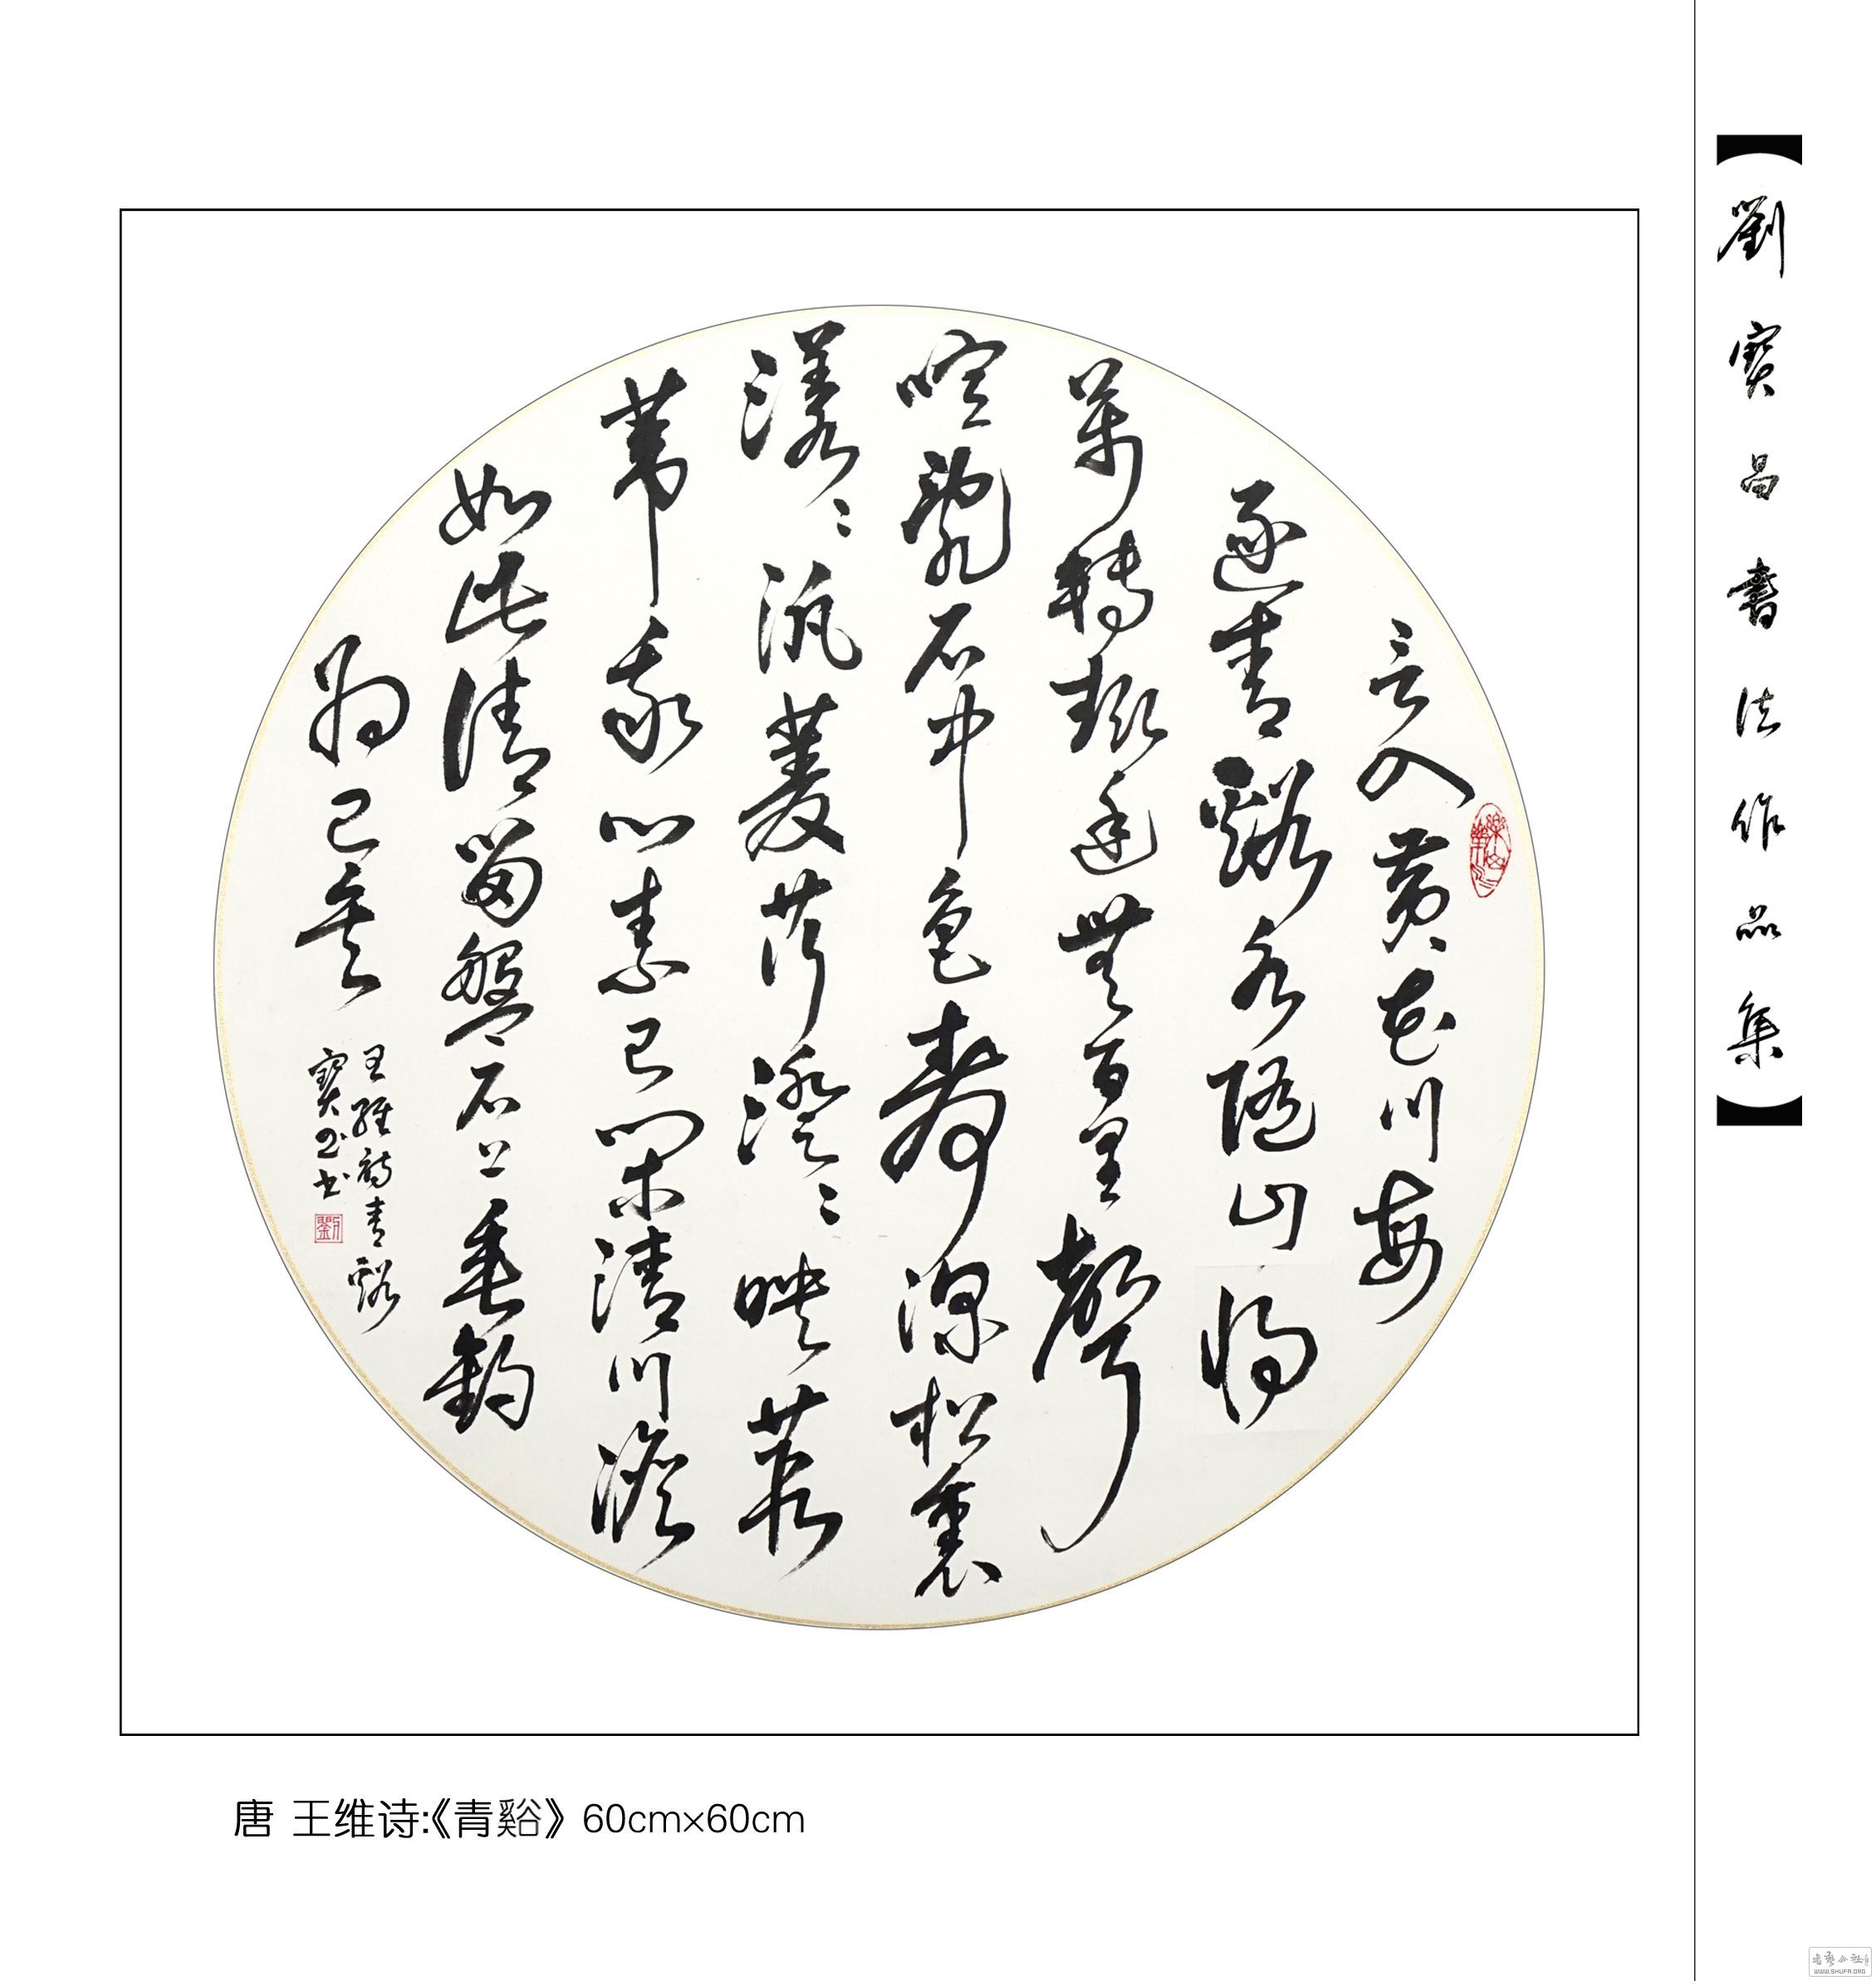 劉寶昌書法作品集
言入黄花川每
逐青谿水隨山將
萬轉趣途無百里聲
喧亂石中色靜深松裏
漾〻汎菱荇澄〻映葭
葦我心素已閑清川澹
如此請留盤石上垂釣
將已矣
王維詩青谿
寶昌書
劉
唐 王维诗:《青谿》 60cm×60cm
WWW.SHUFA.ORG